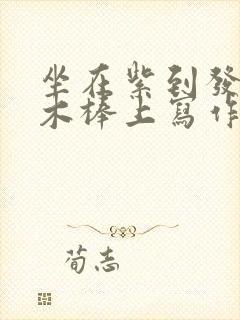 坐在紫到發
木棒上寫作
荀志